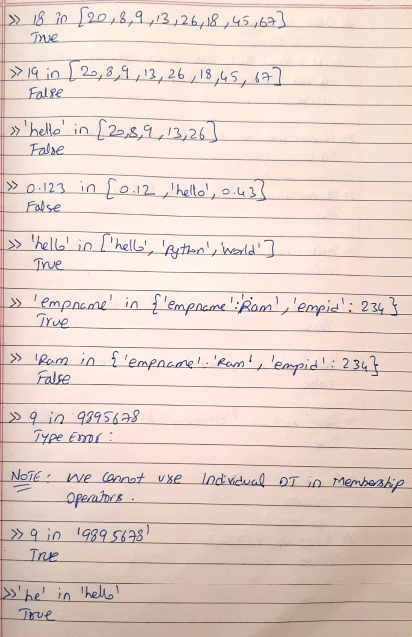 >> 18 in [20,8,9,13,26,18,45,67]
True
>> 19 in [20,8,9,13,26,18,45,67]
False
>> 'hello' in [20,8,9,13,26]
False
>> 0.123 in [0.12,'hello', 0.43]
False
>> 'hello' in ['hello', 'Python','World']
True
>> 'empname' in {'empname':'Ram','empid': 234}
True
>> 'Ram in {'empname':'Ram', 'empid': 234}
False
>> 9 in 9895678
Type Error:
NOTE: We cannot use Individual DT in Membership
Operators.
>> 9 in '9895678'
True
>> 'he' in 'hello'
True